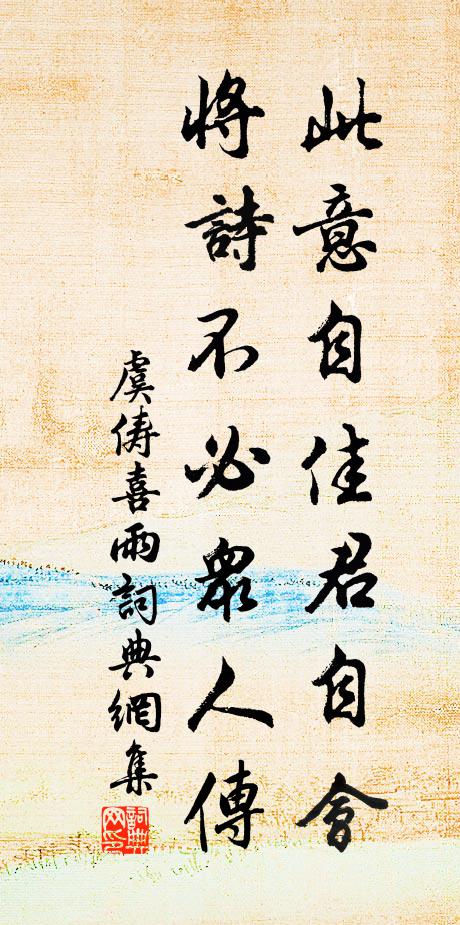 此意自佳君自會
將詩不必眾人傳
虞儔喜雨詞典網集
詞典網印